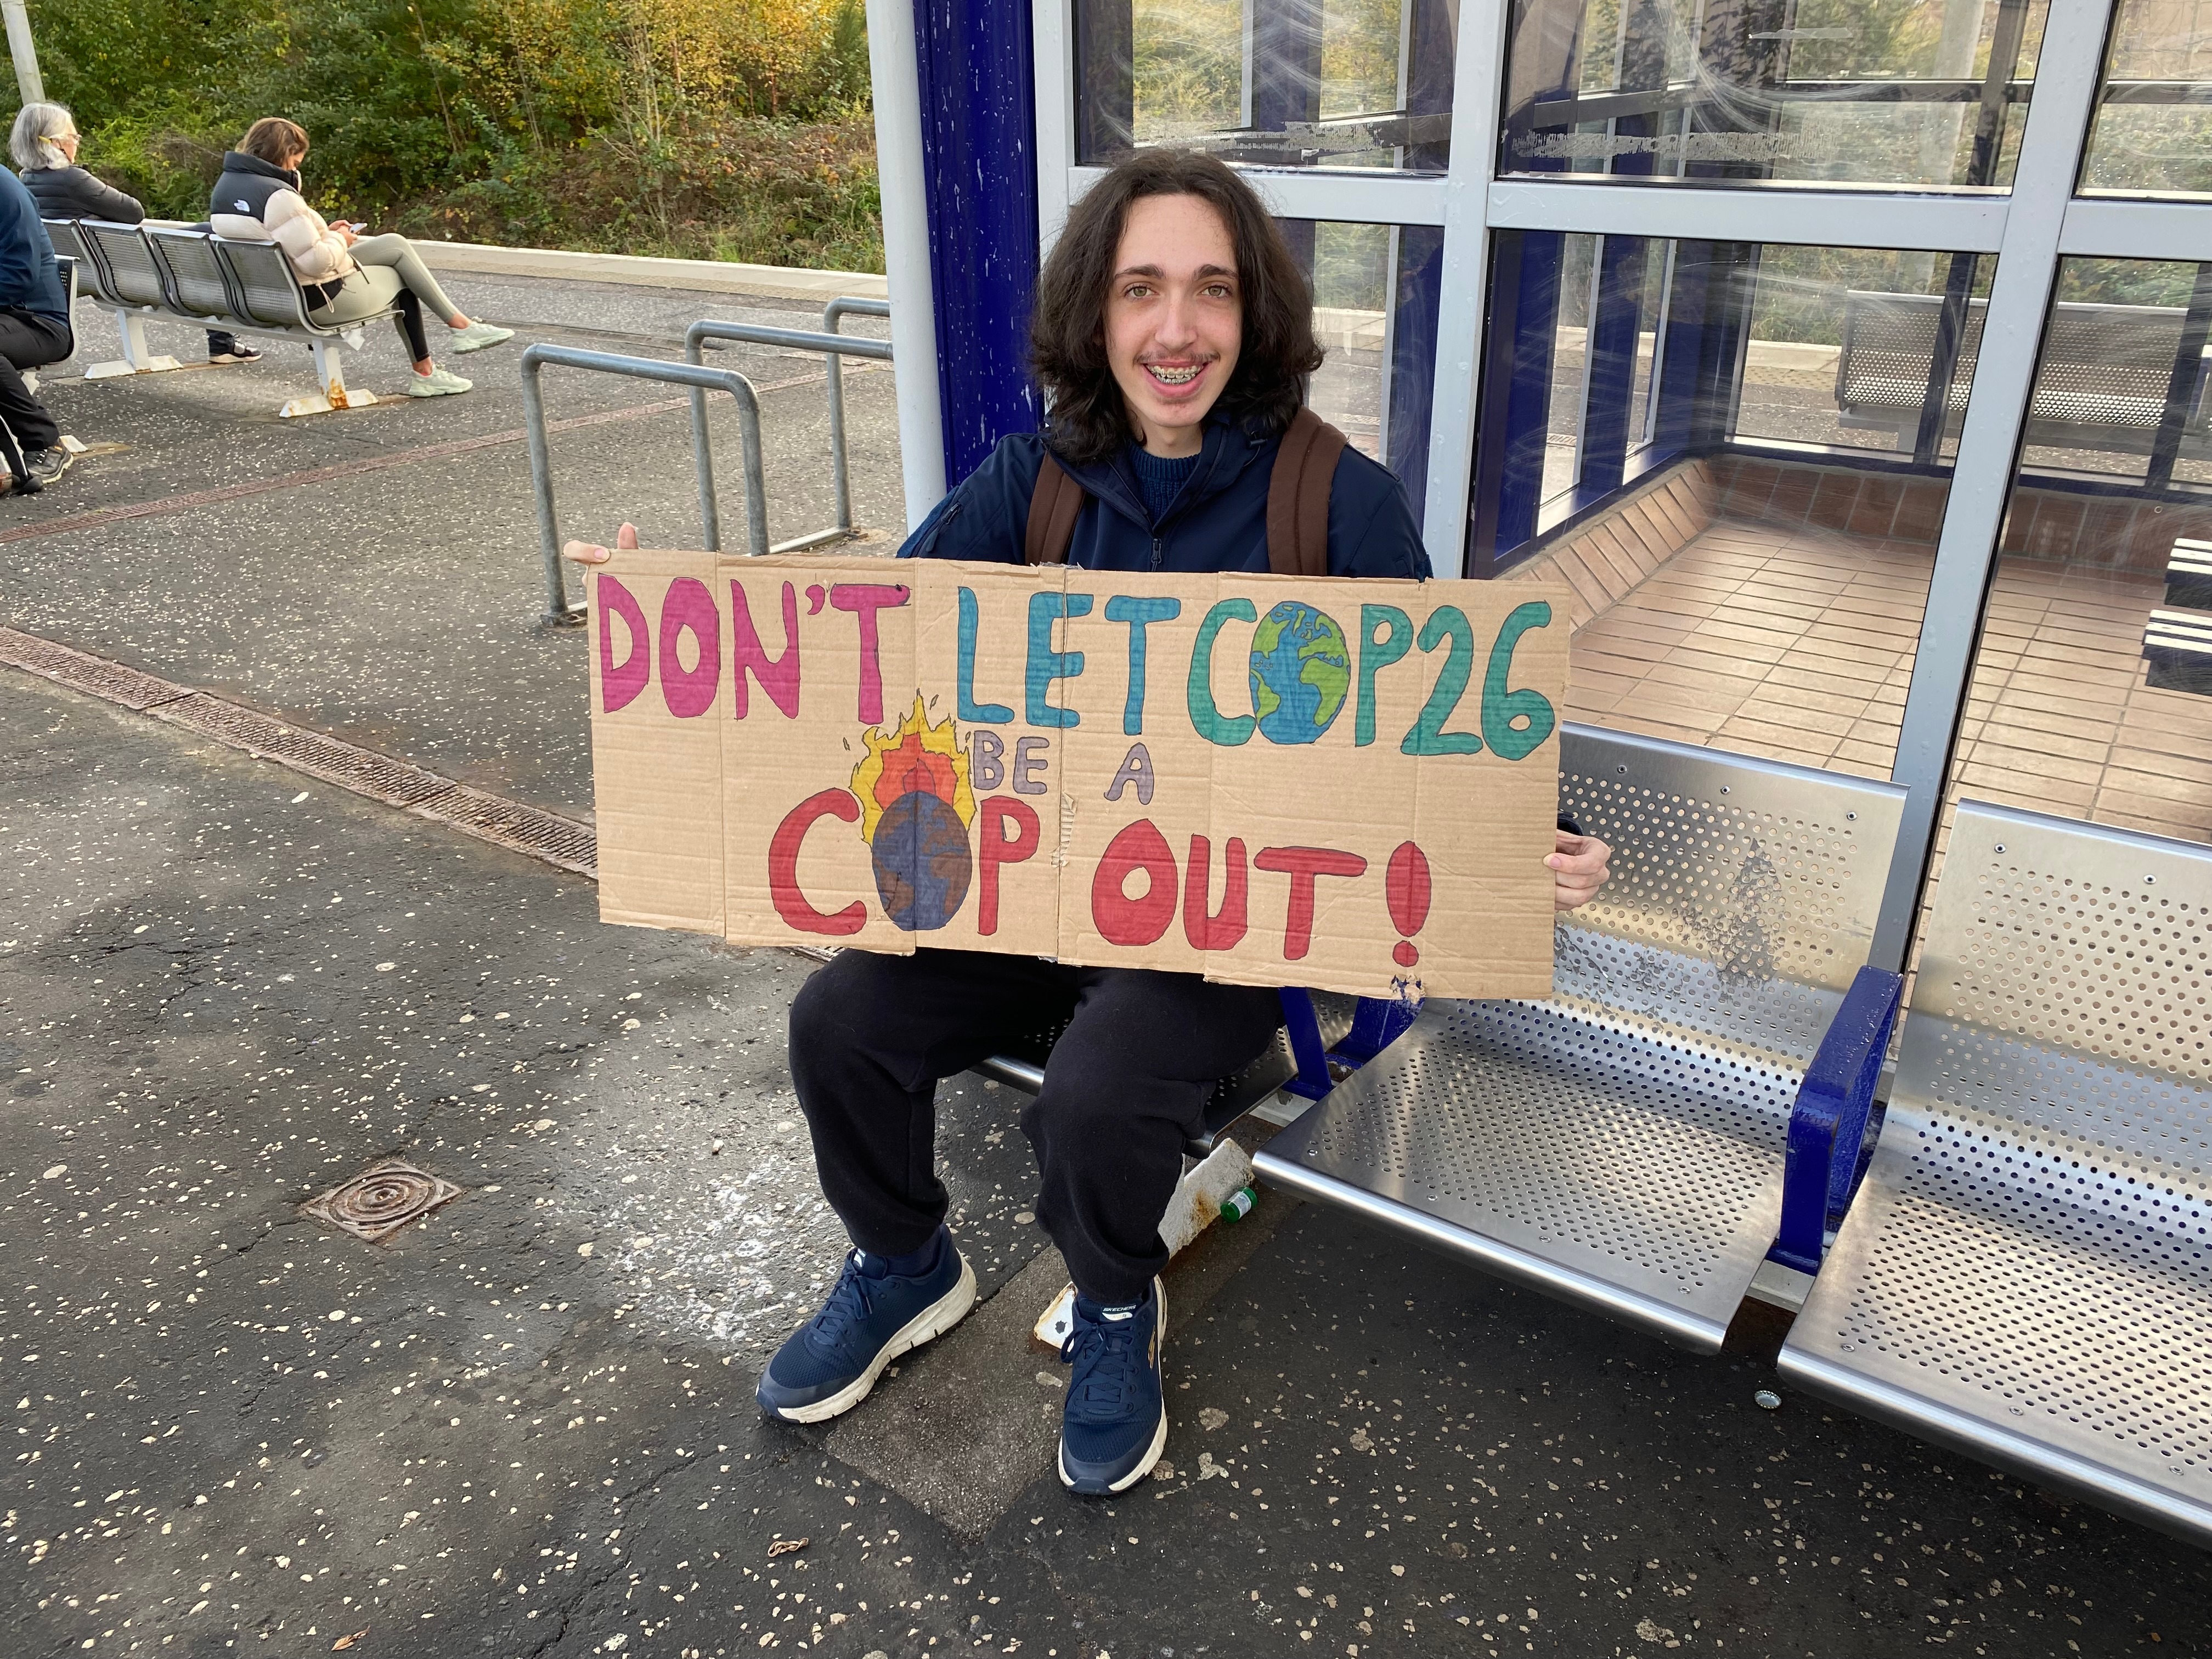 DON'T LET COP26
BE A
COP OUT!
SKECHERS